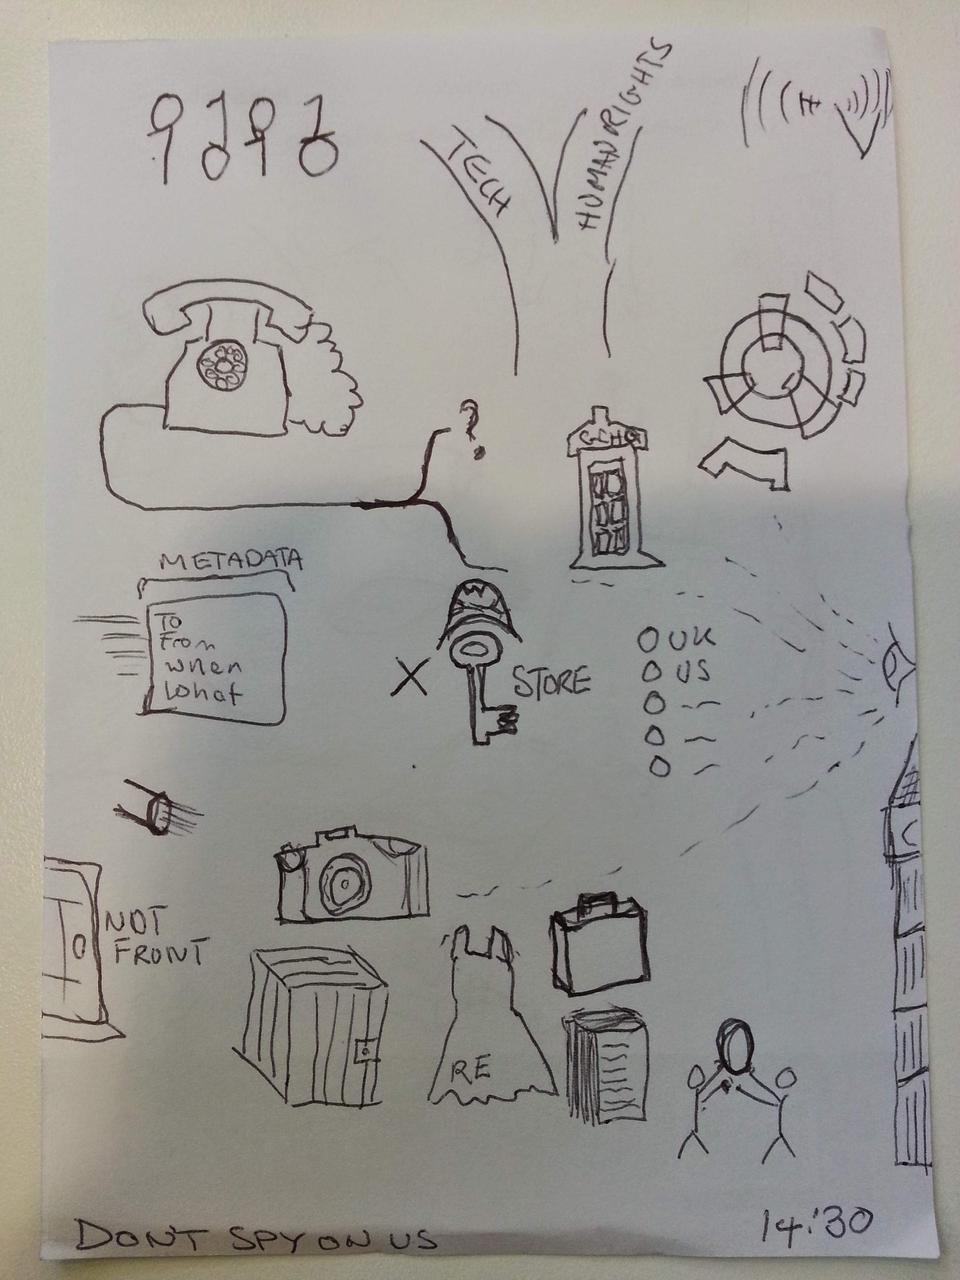 TECH
HUMAN RIGHTS
?
GCHQ
METADATA
TO
From
when
What
X
STORE
O UK
O US
NOT
FRONT
RE
DON'T SPY ON US
14:30